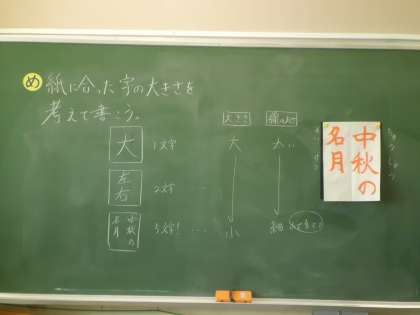 め 紙に合った字の大きさを
考えて書こう。
大きさ
大 1文字
大
太い
左右 2文字 …
中秋の
名月 5文字! …
小
細
中秋の
名月